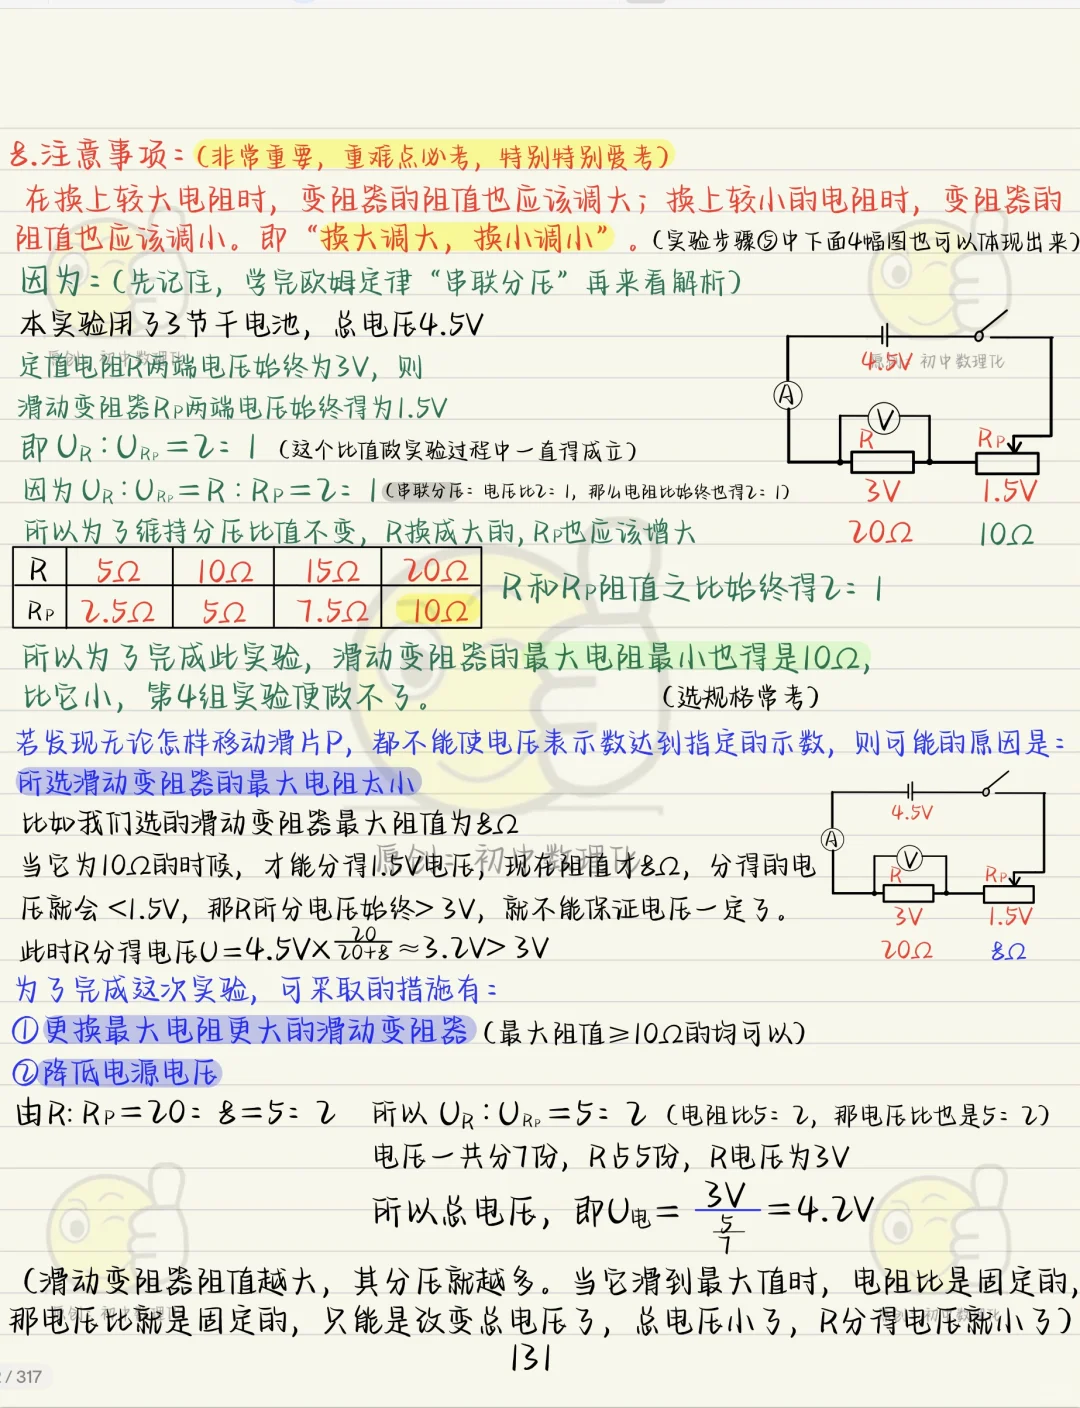 8.注意事项:(非常重要，重难点必考，特别特别爱考)
在换上较大电阻时，变阻器的阻值也应该调大；换上较小的电阻时，变阻器的
阻值也应该调小。即“换大调大，换小调小”。(实验步骤⑤中下面4幅图也可以体现出来)
因为:(先记住，学完欧姆定律“串联分压”再来看解析)
本实验用了3节干电池，总电压4.5V
定值电阻R两端电压始终为3V，则
滑动变阻器RP两端电压始终得为1.5V
即UR:URP=2:1 (这个比值做实验过程中一直得成立)
因为UR:URP=R:RP=2:1(串联分压:电压比2:1，那么电阻比始终也得2:1)
所以为了维持分压比值不变，R换成大的，RP也应该增大
4.5V
A
V
R
RP
3V 1.5V
20Ω 10Ω
R 5Ω 10Ω 15Ω 20Ω
RP 2.5Ω 5Ω 7.5Ω 10Ω
R和RP阻值之比始终得2:1
所以为了完成此实验，滑动变阻器的最大电阻最小也得是10Ω，
比它小，第4组实验便做不了。 (选规格常考)
若发现无论怎样移动滑片P，都不能使电压表示数达到指定的示数，则可能的原因是:
所选滑动变阻器的最大电阻太小
比如我们选的滑动变阻器最大阻值为8Ω
当它为10Ω的时候，才能分得1.5V电压，现在阻值才8Ω，分得的电
压就会<1.5V，那R所分电压始终>3V，就不能保证电压一定了。
此时R分得电压U=4.5V×20/(20+8)≈3.2V>3V
4.5V
A
V
R
RP
3V 1.5V
20Ω 8Ω
为了完成这次实验，可采取的措施有:
①更换最大电阻更大的滑动变阻器(最大阻值≥10Ω的均可以)
②降低电源电压
由R:RP=20:8=5:2 所以UR:URP=5:2 (电阻比5:2，那电压比也是5:2)
电压一共分7份，R占5份，R电压为3V
所以总电压，即U电=3V/(5/7)=4.2V
(滑动变阻器阻值越大，其分压就越多。当它滑到最大值时，电阻比是固定的，
那电压比就是固定的，只能是改变总电压了，总电压小了，R分得电压就小了)
131
/ 317
原创:初中数理化
原创:初中数理化
原创:初中数理化
原创:初中数理化
原创:初中数理化